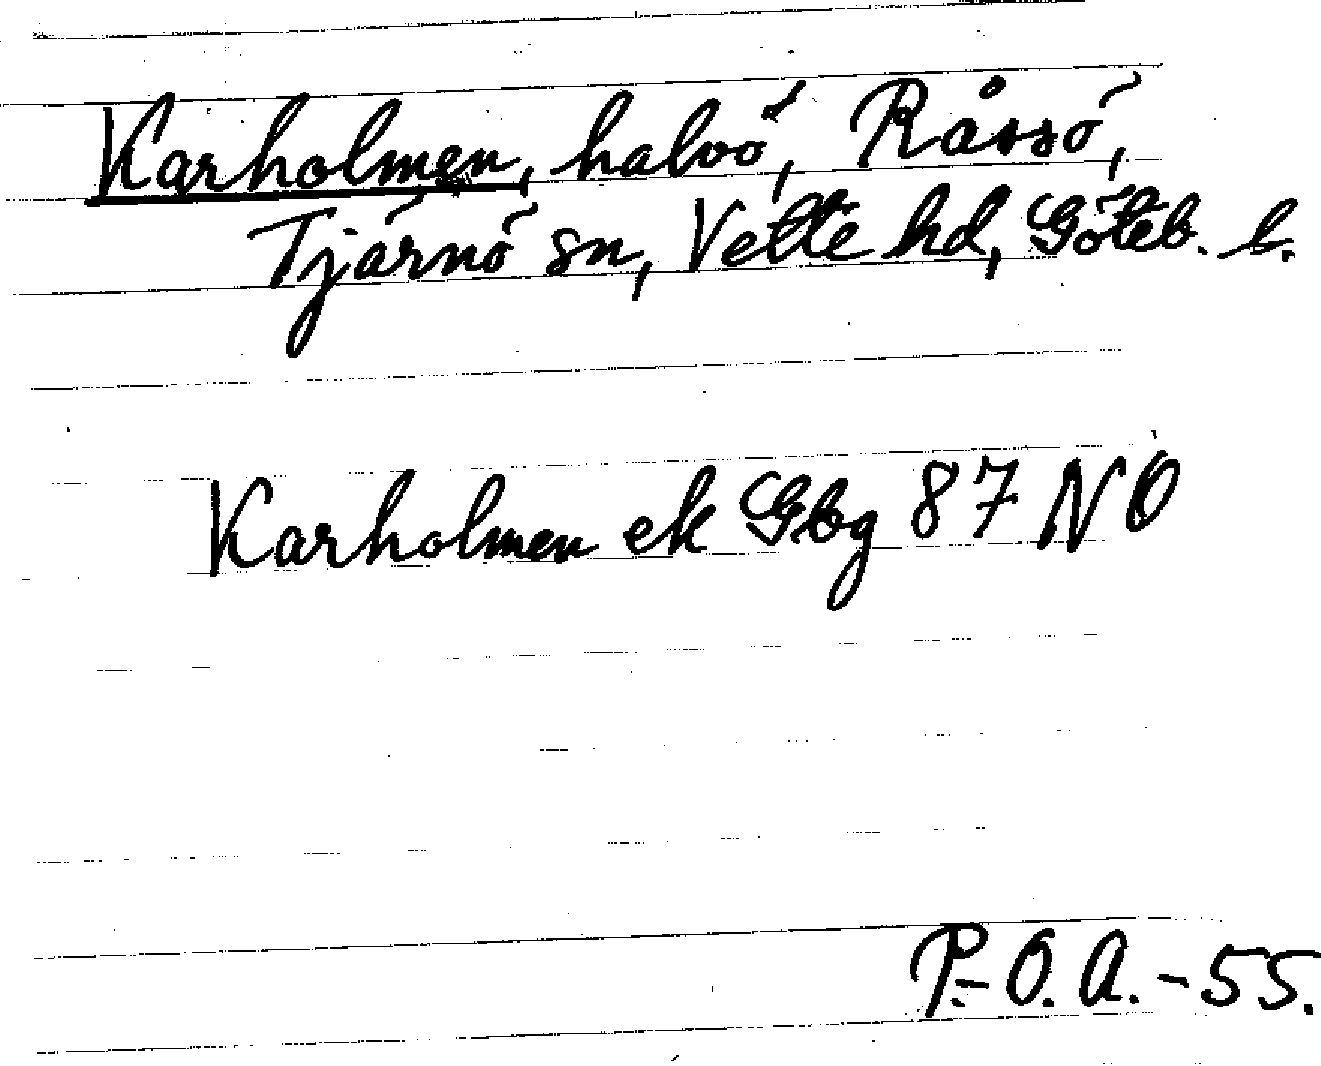 Karholmen, halvö, Råssö,
Tjärnö sn, Vette hd, Göteb. l.
Karholmen ek Gbg 87 NO
P.-O. A. -55.